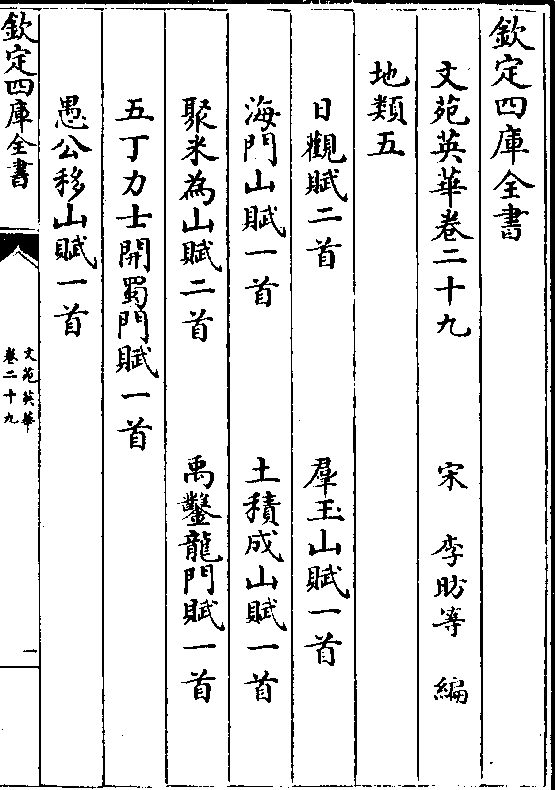 欽定四庫全書
文苑英華卷二十九
宋 李昉等 編
地類五
日觀賦二首
羣玉山賦一首
海門山賦一首
土積成山賦一首
聚米為山賦二首
禹鑿龍門賦一首
五丁力士開蜀門賦一首
愚公移山賦一首
欽定四庫全書
文苑英華
卷二十九
一